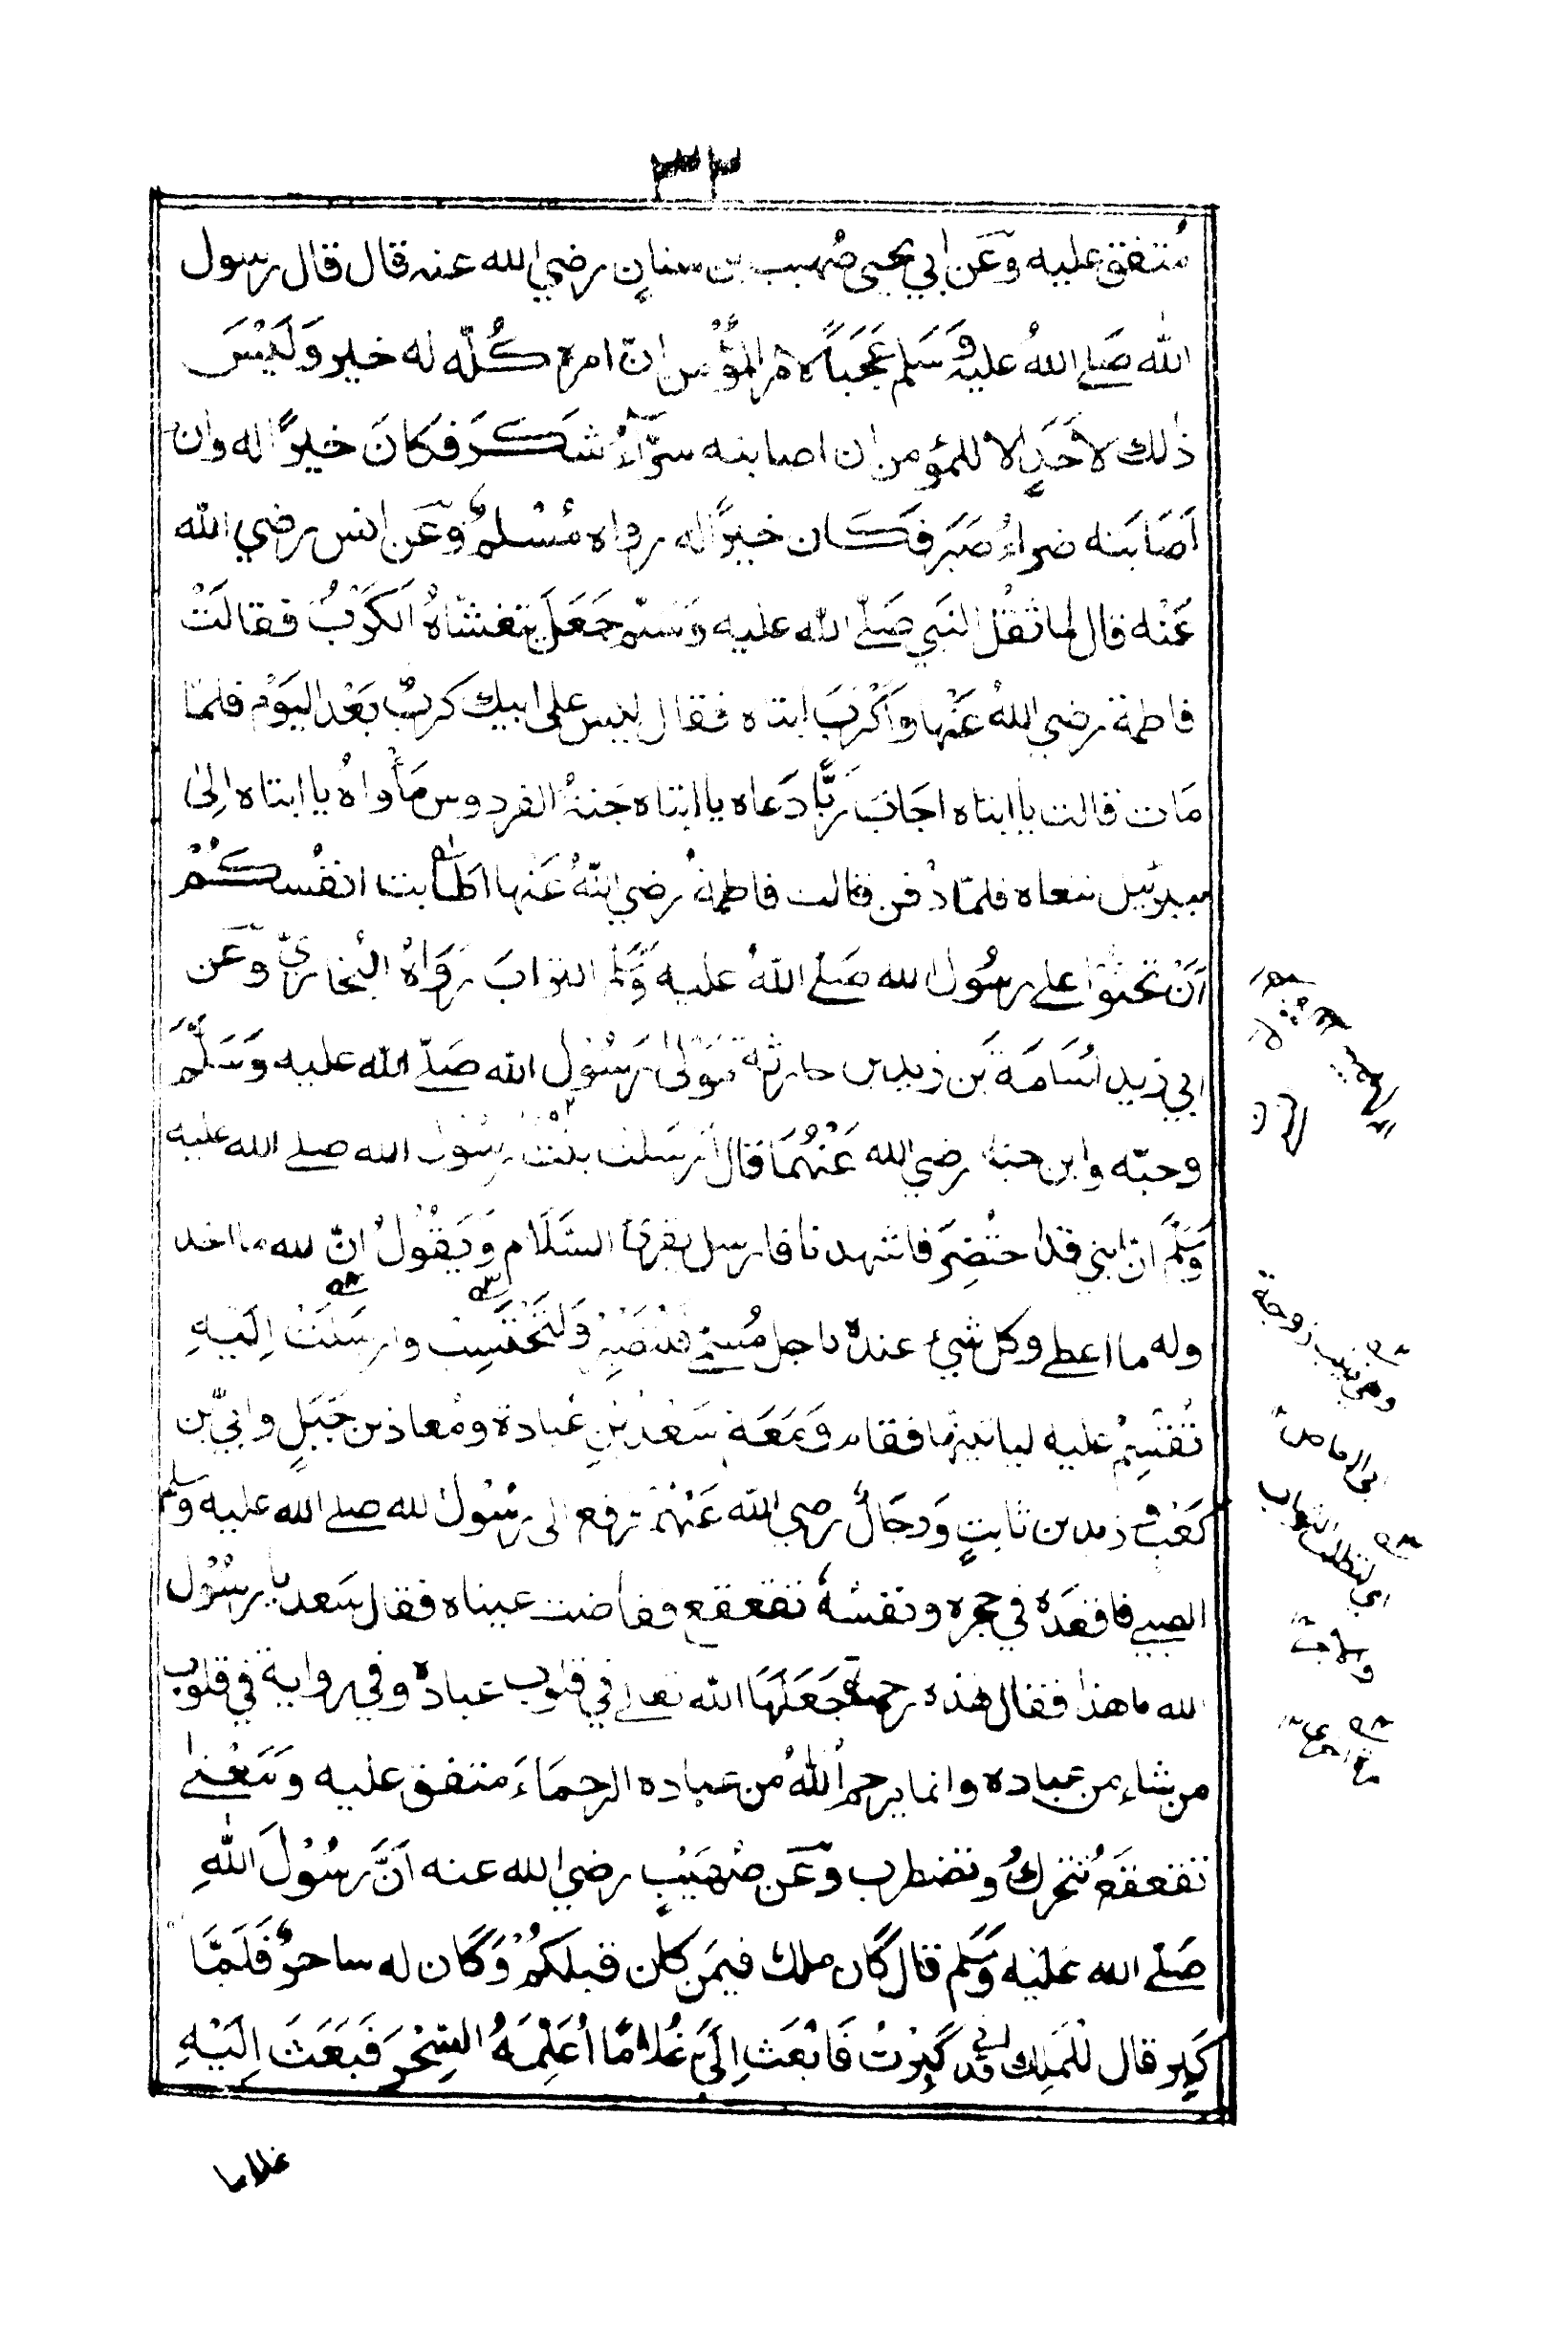 ٣٣
مُتفق عليه وَعَن ابي يحيى صُهيب بن سنانٍ رضي الله عنه قال قال رسول
الله صَلى اللهُ عليه وَسَلم عَجَبًا لامر المؤمن انّ امره كُلّه له خير وَلَيْسَ
ذٰلك لاَحَدٍ الا للمؤمن ان اصابته سرّاءُ شَكَرَ فكانَ خيرًا له وان
اَصَابَته ضراءُ صَبَرَ فَكَان خيرًا له رواه مُسْلمٌ وَعَن انس رضي الله
عَنْه قال لما ثَقُلَ النَبي صَلّى الله عليه وَسَلم جَعَلَ يتغشّاهُ الكَرْبُ فقالَتْ
فاطمة رضي اللهُ عَنْها واكَرْبَ ابتاه فقال ليس على ابيك كربٌ بَعْدَ اليَوْم فلمّا
مَات قالت يا ابتاه اجَابَ رَبًّا دَعَاه يا ابتاه جَنةُ الفردوس مَأْواهُ يا ابتاه اِلىٰ
جبرئيل ننعاه فلمّا دُفن قالت فاطمةُ رضي اللهُ عَنْها اطَابت انفُسكُمْ
اَنْ تَحْثُوْا على رسُول الله صَلى اللهُ عليه وَسَّلم التراب رَوَاهُ البُخاريّ وَعَن
ابي زيد اُسَامَةَ بَن زيد بن حارثة مَوْلىٰ رَسُوْل الله صَلّى الله عليه وَسَلَّمَ
وحبّه وابن حبّه رضي الله عَنْهُمَا قال اَرسَلت بنْتُ رسُول الله صلى الله عليه
وَسَلّمَ انّ ابني قد احتُضِرَ فاشهدنا فارسل يقرئ السَّلَام وَيَقُوْلُ انّ لله ما اخذ
وله ما اعطى وكل شيء عندهٗ باجل مُسمّى فلتَصْبِرْ وَلْتَحْتَسِبْ وارسَلَتْ اِلَيْهِ
تُقْسِمُ عليه لياتينّها فقام وَمَعَهٗ سَعْدُ بْنُ عُبادة ومُعاذ بن جَبَلٍ وابيّ بن
كَعْبٍ وزيد بن ثابتٍ وَرجَالٌ رضي الله عَنْهُمْ فرفع الى رسُوْل الله صلى الله عليه وسلم
الصبي فاقعَدَهٗ في حجره ونفسُهٗ تقعقع ففاضت عيناه فقال سَعد يا رسُوْل
الله ما هذا فقال هٰذه رحمة جَعَلَهَا الله تعالى في قلوب عبادهٖ وفي رواية في قلوب
من شاء من عباده وانما يرحم اللهُ من عباده الرحمَاءَ متفق عليه وَمَعْنىٰ
تقعقَعُ تتحركُ وتضطرب وَعَن صُهَيْبٍ رضي الله عنه اَنَّ رسُوْلَ اللهِ
صَلّى الله عَلَيْه وَسَلم قال كَان ملك فيمَن كان قبلَكُمْ وَكَان له ساحرٌ فَلَمَّا
كَبِر قال لْلمَلِك اني قد كَبِرْتُ فَابْعَث اِلَيَّ غُلامًا اُعَلِّمْهُ السِّحْرَ فَبَعَثَ اِلَيْهِ
وهي زينب زوجة
ابي العاص
اي لتطلب الثواب
غلاما